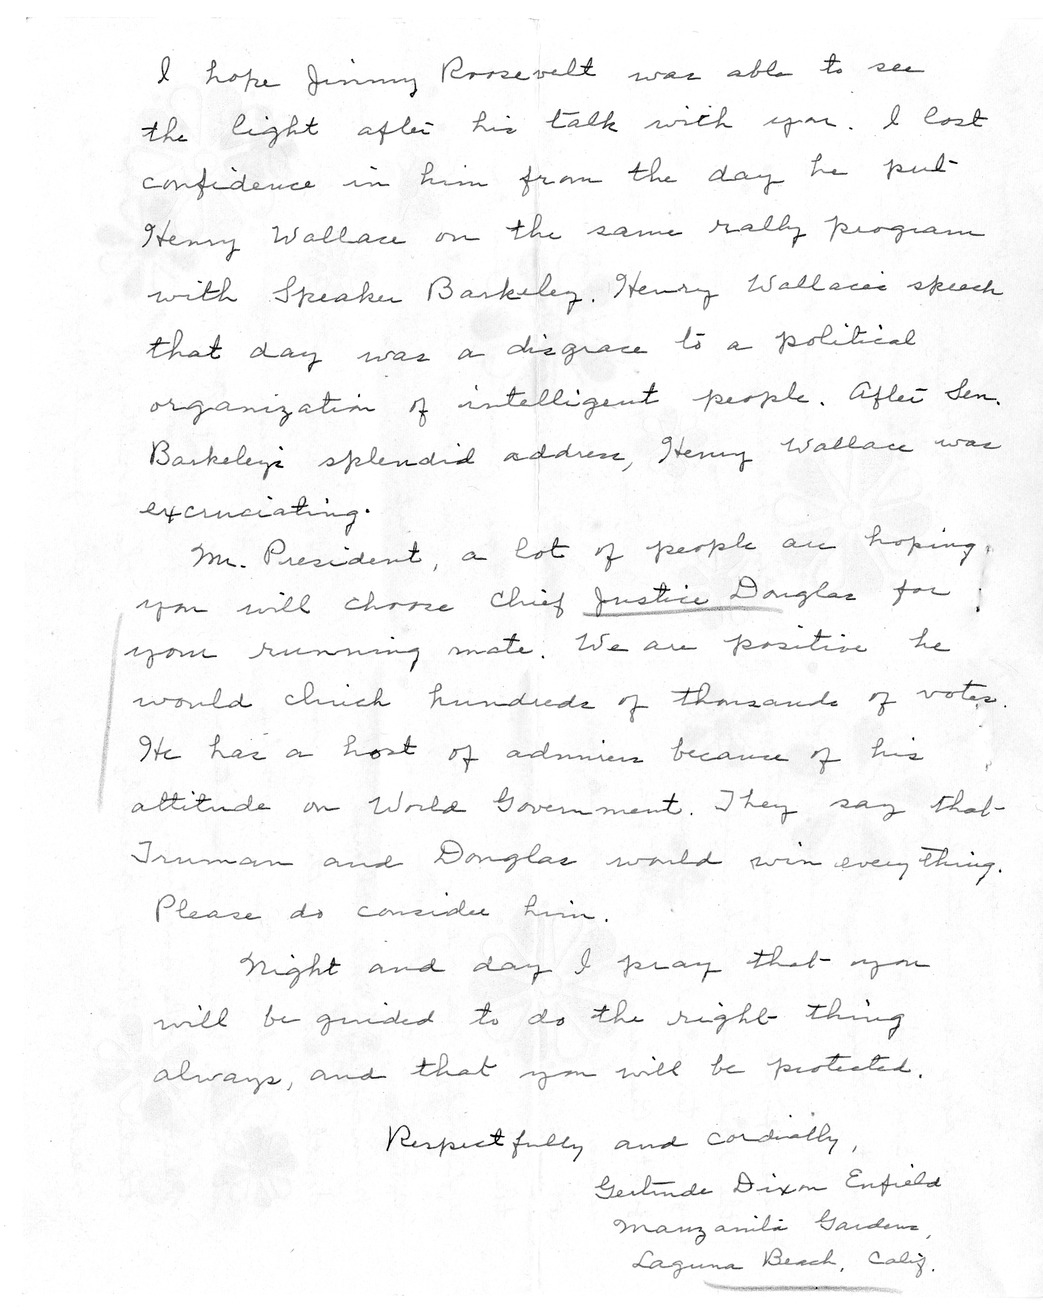 I hope Jimmy Roosevelt was able to see
the light after his talk with you. I lost
confidence in him from the day he put
Henry Wallace on the same rally program
with Speaker Barkeley. Henry Wallace's speech
that day was a disgrace to a political
organization of intelligent people. After Sen.
Barkeley's splendid address, Henry Wallace was
excruciating.
Mr. President, a lot of people are hoping
you will choose Chief Justice Douglas for
your running mate. We are positive he
would clinch hundreds of thousands of votes.
He has a host of admirers because of his
attitude on World Government. They say that
Truman and Douglas would win everything.
Please do consider him.
Night and day I pray that you
will be guided to do the right thing
always, and that you will be protected.
Respectfully and cordially,
Gertrude Dixon Enfield
Manzanila Gardens,
Laguna Beach, Calif.